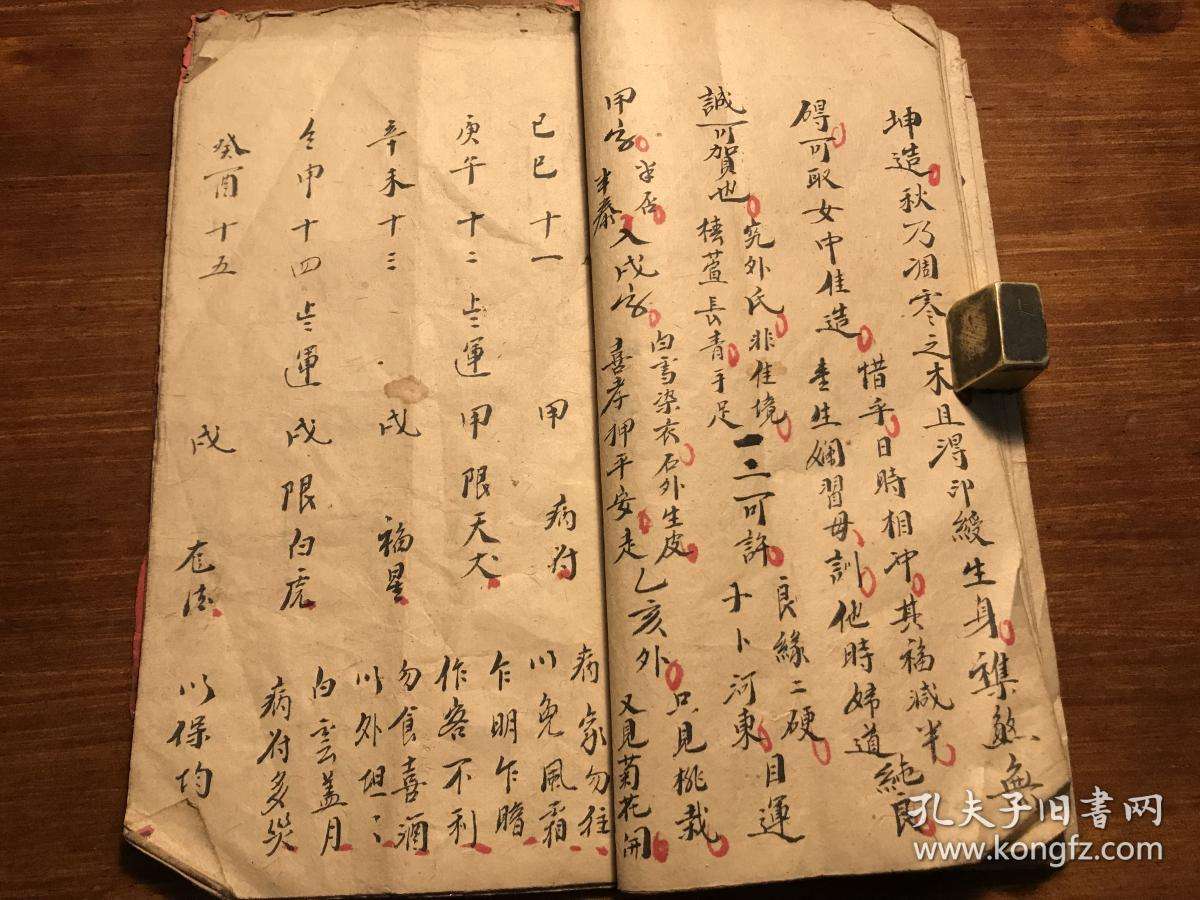 坤造秋乃凋零之木且得印綬生身雜煞無
碍可取女中佳造惜乎日時相冲其福减半
生嫻習母訓他時婦道純良
誠可賀也究外氏非佳境
椿萱長青手足一二可許良緣二硬
卜河東目運
甲字半否半泰入戌字白雪染衣石外生皮
喜孝押平安走乙亥外只見桃栽
又見菊花開
己巳十一 甲 病符 病家勿往
以免風霜
庚午十二 上運 甲 限天犬 乍明乍暗
作客不利
辛未十三 戌 福星 勿食喜酒
以外坦々
壬申十四 上運 戌 限白虎 白雲盖月
病符多災
癸酉十五 戌 以保均
孔夫子旧书网
www.kongfz.com